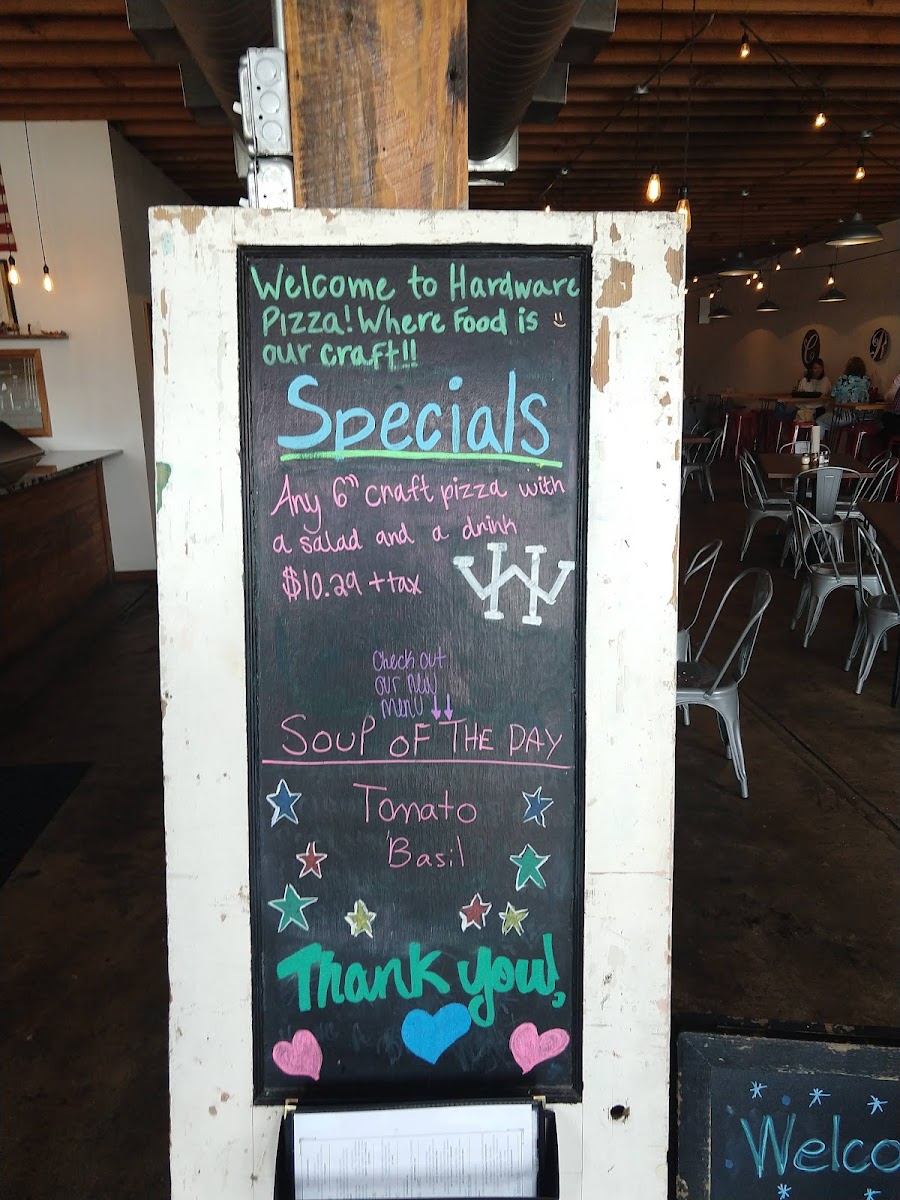 Welcome to Hardware
Pizza! Where Food is
our craft!!
Specials
Any 6" craft pizza with
a salad and a drink
$10.29 + tax
Check out
our new
menu
Soup of The Day
Tomato
Basil
Thank you!
Welco
C
R